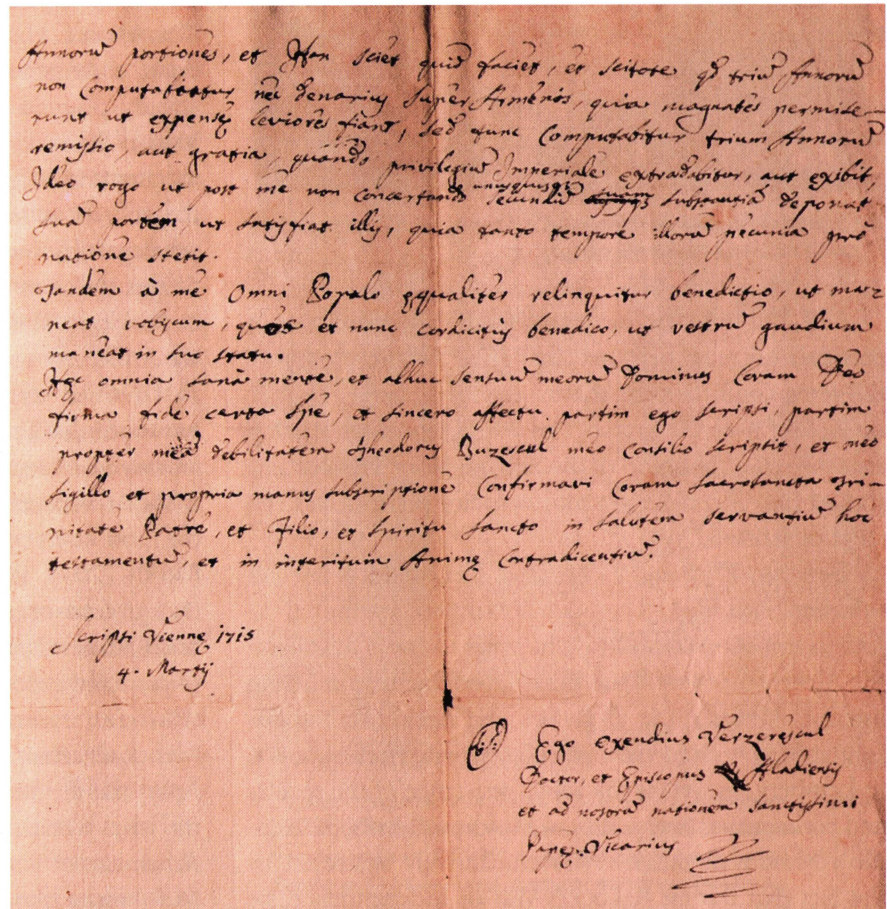 Annorũ portiones, et Itan sciet quid faciet, et scitote qd triũ Annorũ
non Computabatur nec denarius super Armenos, quia magnates permise-
runt ut expensę leviores fiant, sed tunc Computabitur trium Annorũ
remissio, aut gratia, quando privilegiũ Imperiale extradabitur, aut exibit,
Ideo rogo ut post me non concertando unusquisq; secundũ substantiã deponat
suã portem, ut satisfiat illis, quia tanto tempore illorũ pecunia pro
natione stetit.
Tandem à me Omni Populo ęqualiter relinquitur benedictio, ut ma-
neat vobiscum, quos et nunc cordicitus benedico, ut vestrũ gaudium
maneat in suo statu.
Hęc omnia sanâ mente, et adhuc sensuũ meorũ Dominus Coram Deo
firma fide, certa spe, et sincero affectu partim ego scripsi, partim
propter meã debilitatem Theodorus Buzescul meo Consilio scripsit, et meo
sigillo et propria manus subscriptione Confirmavi Coram Sacrosancta Tri-
nitate Patre, et Filio, et Spiritu Sancto in salutem servantiũ hoc
testamentũ, et in interitum Animę Contradicentiũ.
Scripsi Viennę 1715
4. Martij
L:S: Ego Oxendius Verzerescul
Doctor, et Episcopus Aladiensis
et ad nostrã nationem Sanctissimi
Papę Vicarius